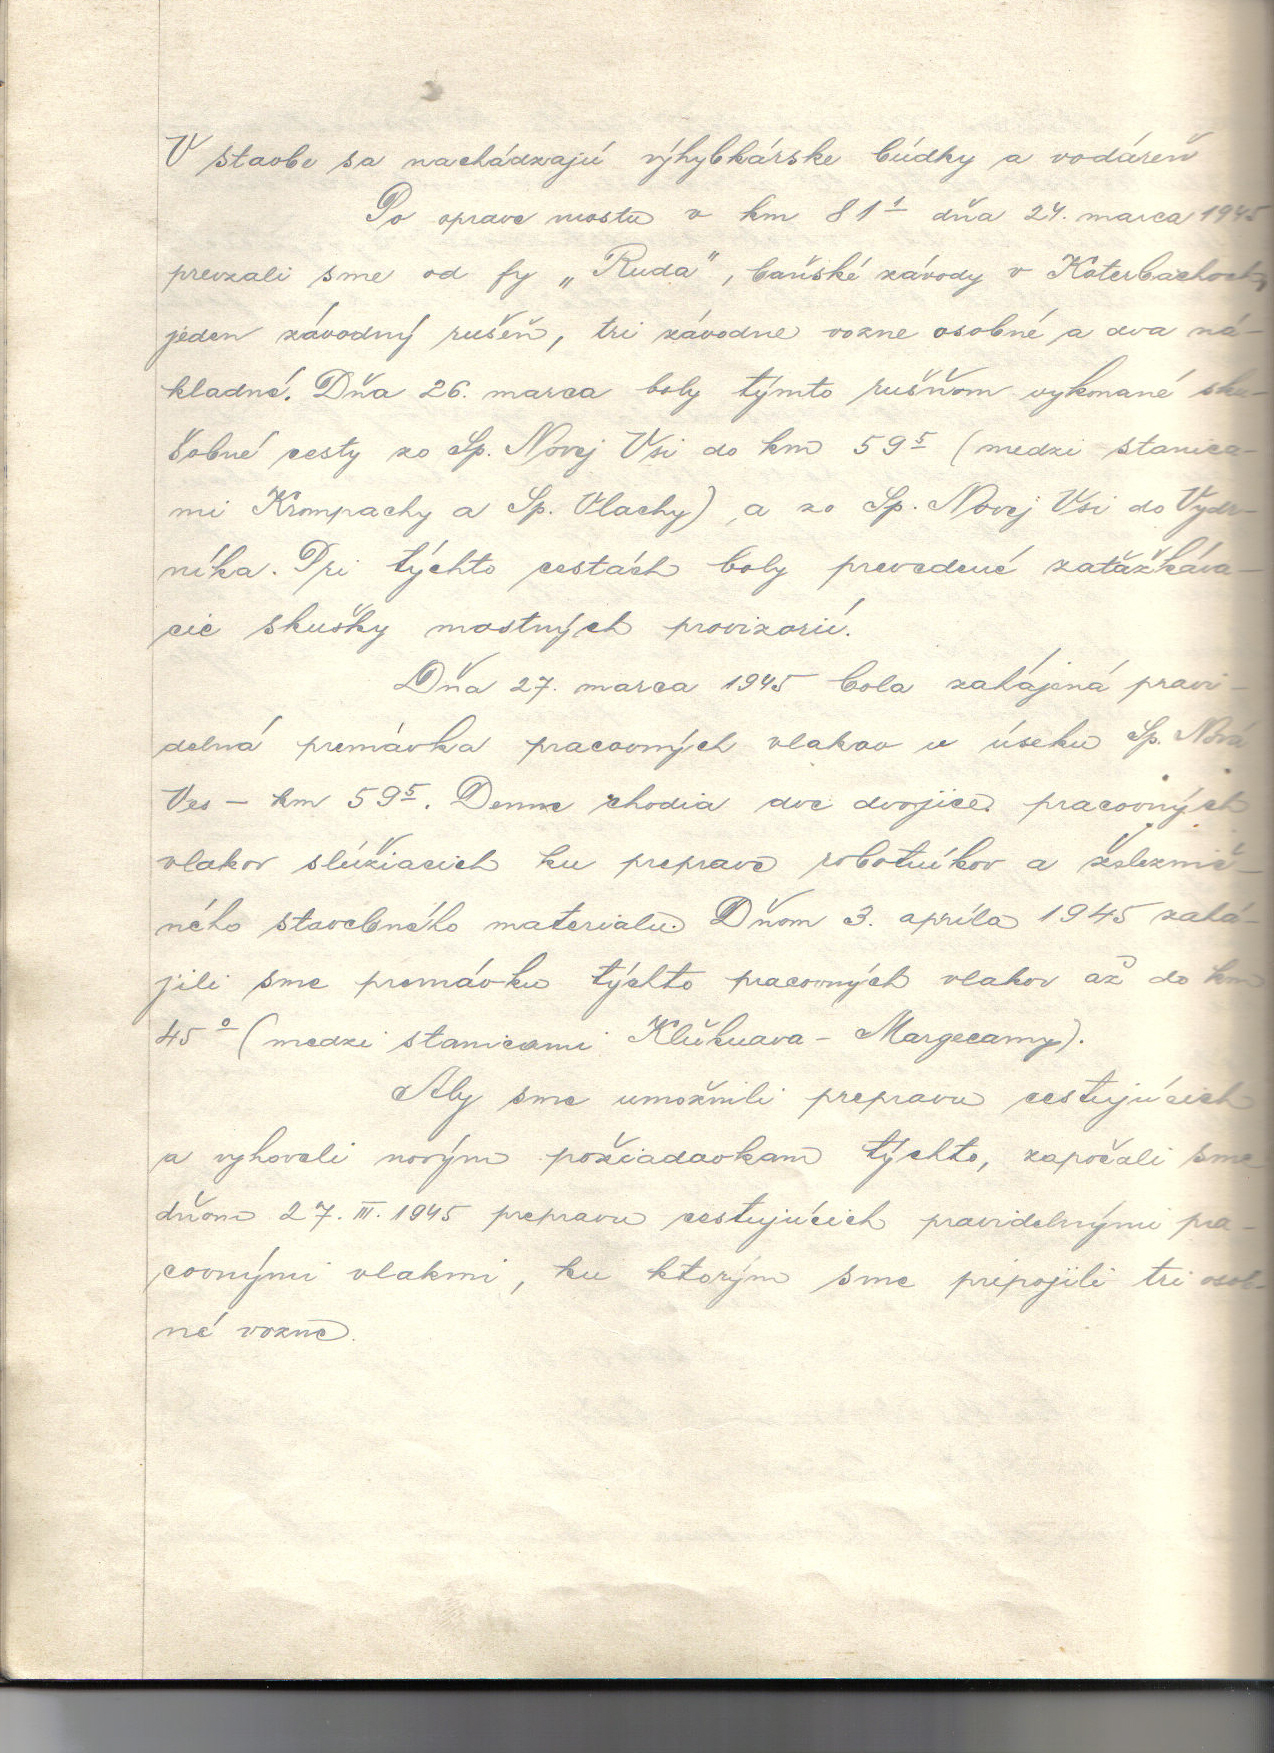 V stavbe sa nachádzajú výhybkárske búdky a vodáreň
Po oprave mostu v km 81¹ dňa 24. marca 1945
prevzali sme od fy „Ruda", banské závody v Koterbachoch,
jeden závodný rušeň, tri závodne vozne osobné a dva ná-
kladné. Dňa 26. marca boly týmto rušňom vykonané sku-
šobné cesty zo Sp. Novej Vsi do km 59⁵ (medzi stanica-
mi Krompachy a Sp. Vlachy) a zo Sp. Novej Vsi do Vydr-
níka. Pri týchto cestách boly prevedené zaťažkáva-
cie skušky mostných provizorií.
Dňa 27. marca 1945 bola zahájená pravi-
delná premávka pracovných vlakov v úseku Sp. Nová
Ves - km 59⁵. Denne chodia dve dvojice pracovných
vlakov slúžiacich ku preprave robotníkov a železnič-
ného stavebného materialu. Dňom 3. apríla 1945 zahá-
jili sme premávku týchto pracovných vlakov až do km
45⁰ (medzi stanicami Kluknava - Margecany).
Aby sme umožnili prepravu cestujúcich
a vyhoveli novým požiadavkam týchto, započali sme
dňom 27. III. 1945 prepravu cestujúcich pravidelnými pra-
covnými vlakmi, ku ktorým sme pripojili tri osob-
né vozne.